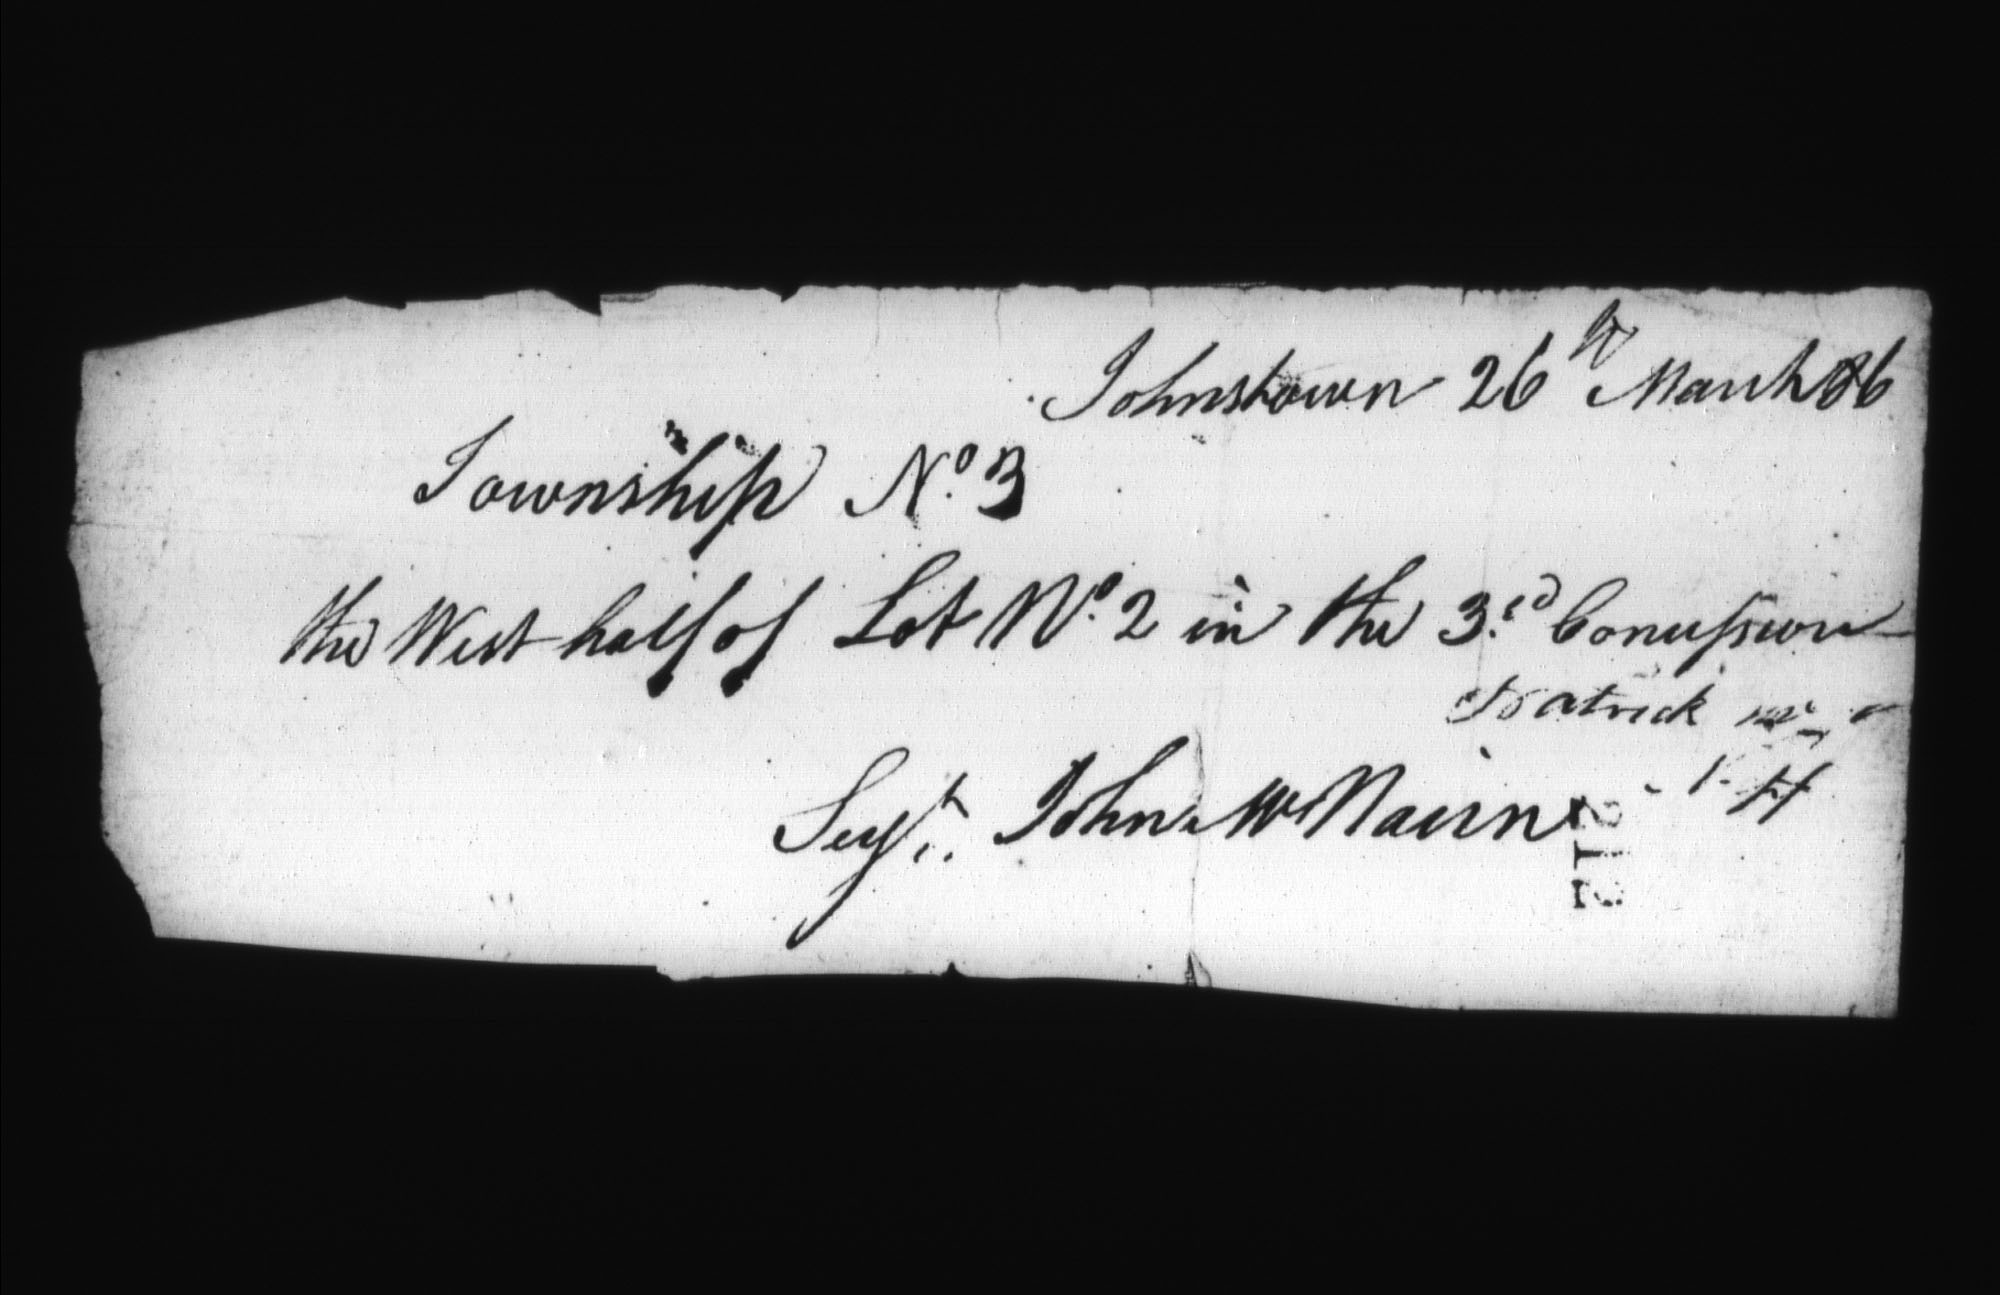 Johnstown 26th March 86
Township No. 3
the West half of Lot No. 2 in the 3rd Concession
Patrick Mc
Serjt. John McNairn
212